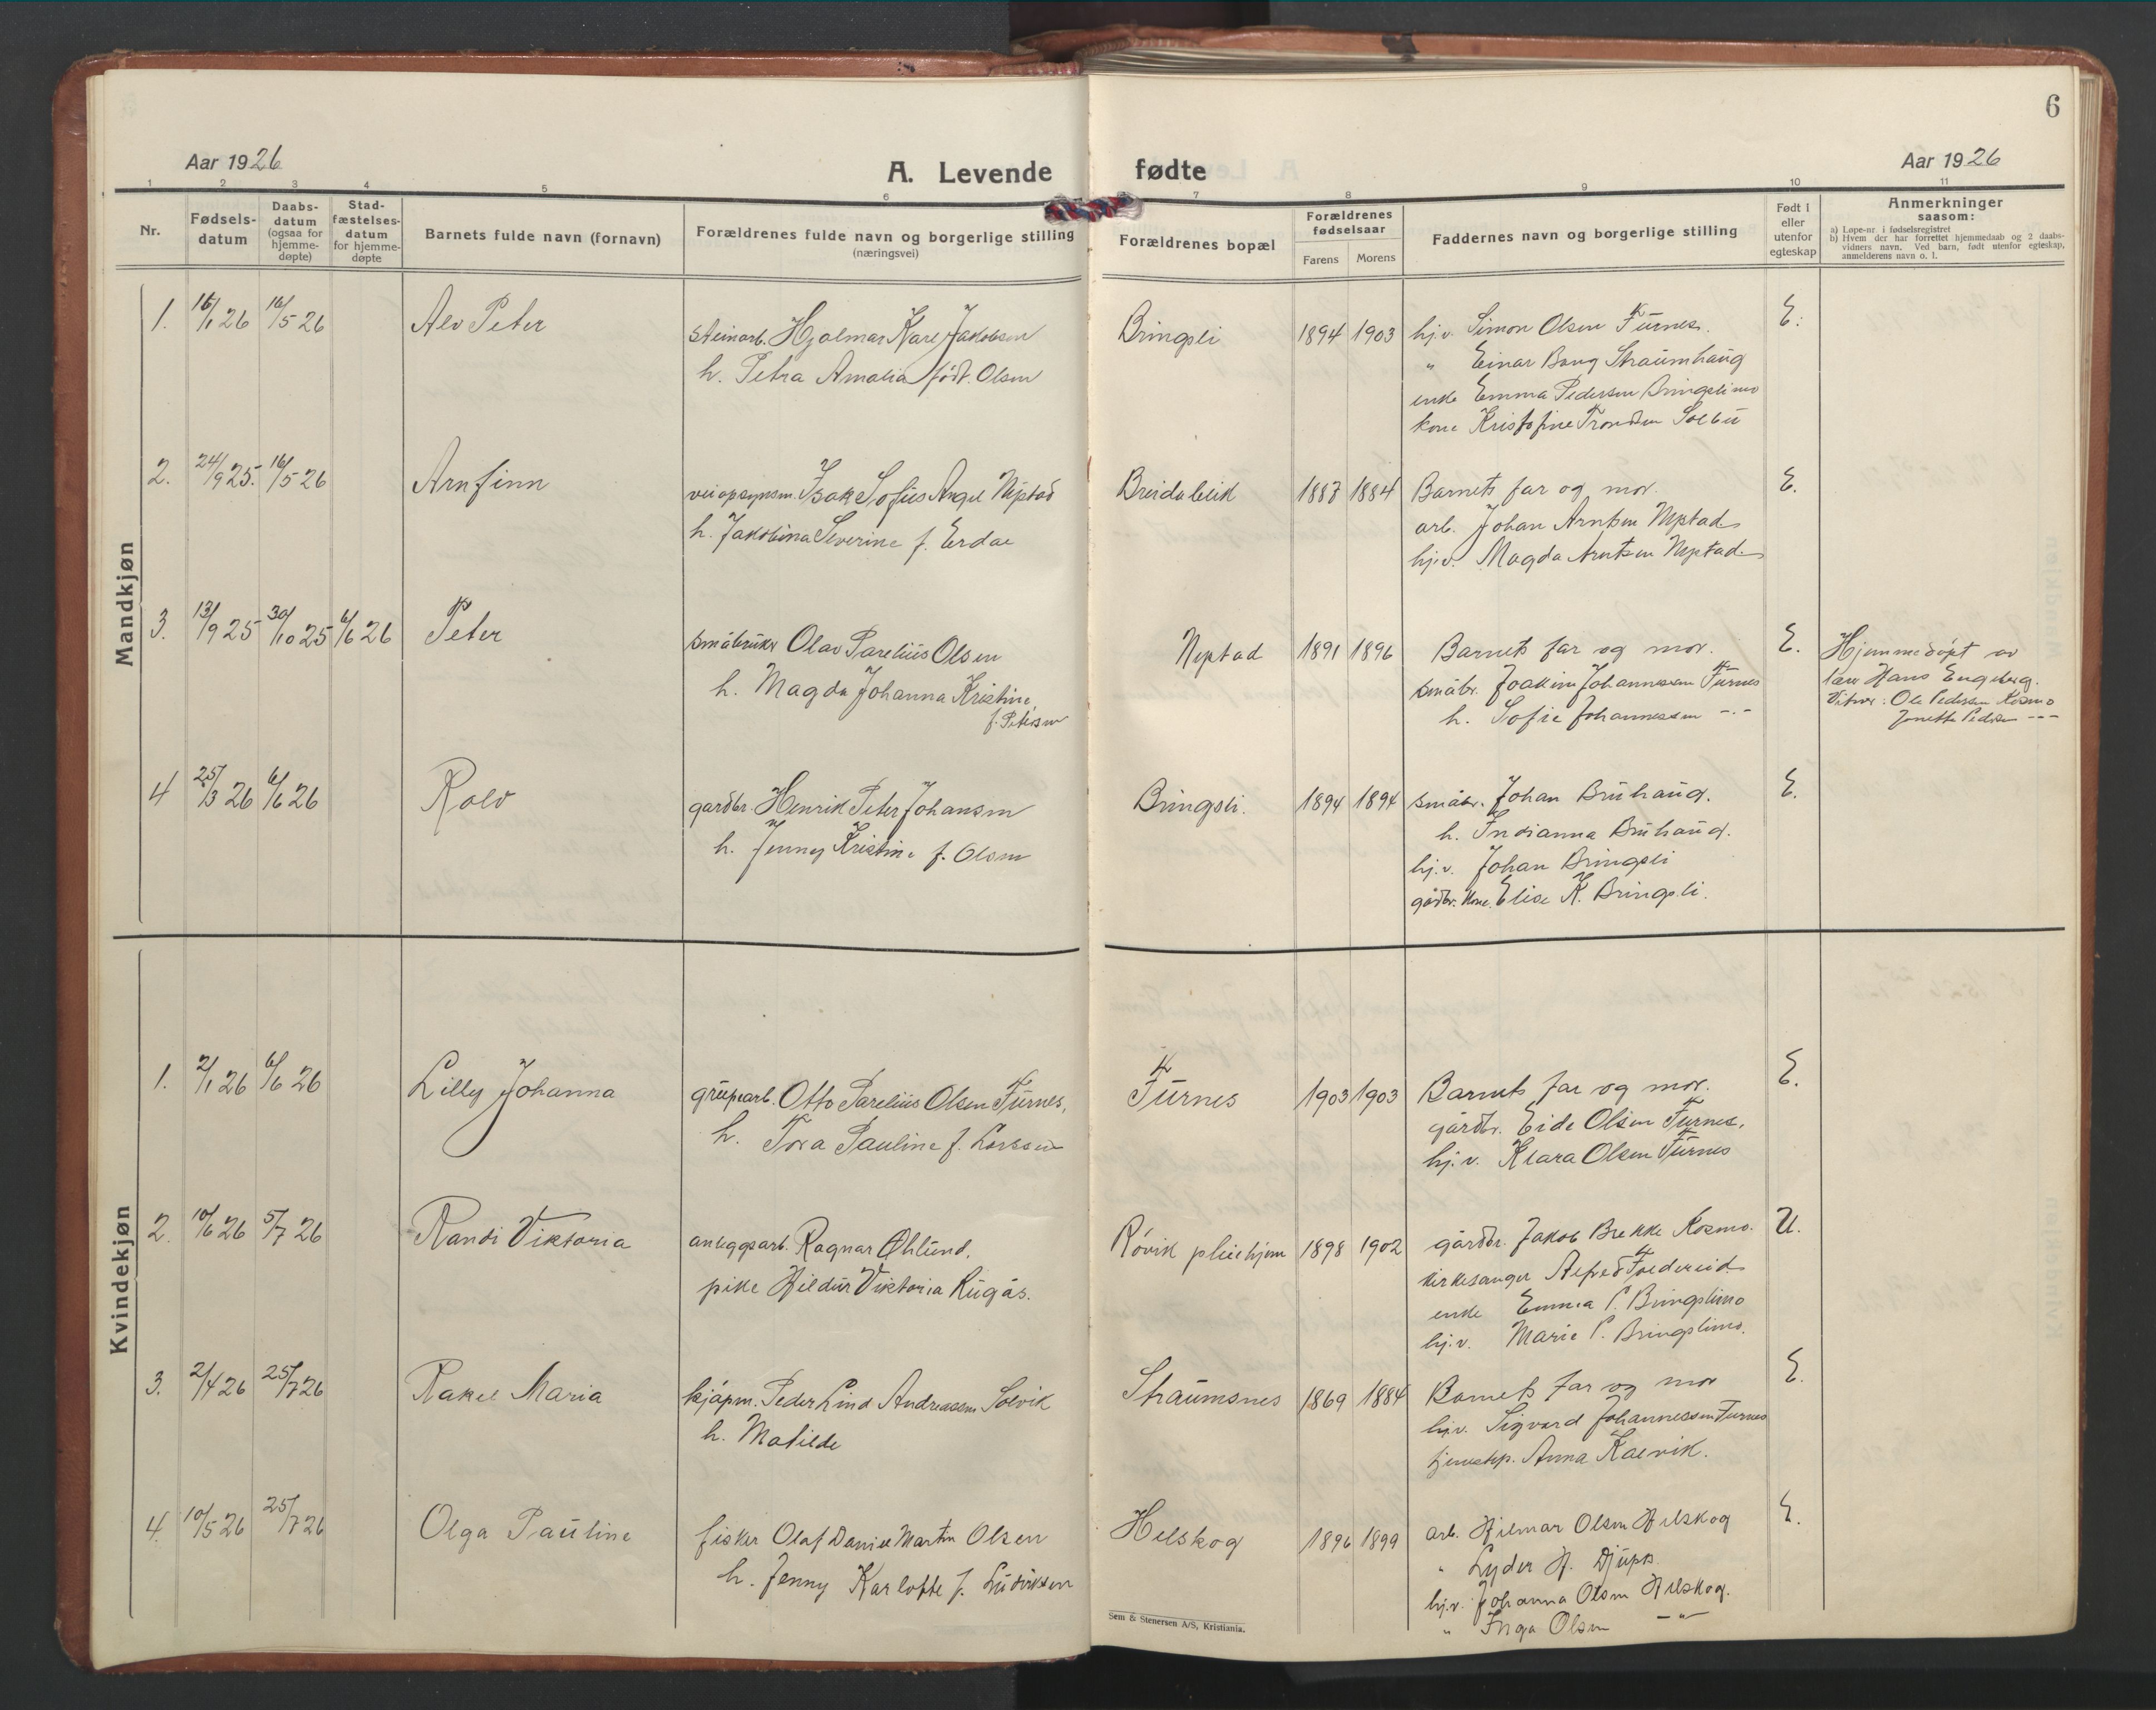 6
Aar 1926
A. Levende fødte
Aar 1926
1 2 3 4 5 6 7 8 9 10 11
Nr.
Fødsels-
datum
Daabs-
datum
(ogsaa for
hjemme-
døpte)
Stad-
fæstelses-
datum
for hjemme-
døpte
Barnets fulde navn (fornavn)
Forældrenes fulde navn og borgerlige stilling
(næringsvei)
Forældrenes bopæl
Forældrenes
fødselsaar
Farens Morens
Faddernes navn og borgerlige stilling
Født i
eller
utenfor
egteskap
Anmerkninger
saasom:
a) Løpe-nr. i fødselsregistret
b) Hvem der har forrettet hjemmedaab og 2 daabs-
vidners navn. Ved barn, født utenfor egteskap,
anmelderens navn o. l.
Mandkjøn
1. 16/1 26 16/5 26
Alv Peter
steinarb. Hjalmar Karl Jakobsen
h. Petra Amalia født. Olsen
Bringsli
1894 1903
hj.v. Simon Olsen Furnes.
" Einar Bang Straumhaug
enke Emma Pedersen Bringslimo
kone Kristofine Trondsen Solbu
E.
2. 24/9 25. 16/5 26
Arnfinn
veiopsynsm. Isak Sofus Angel Neptad
h. Jakobina Severine f. Erdal
Breidableik
1887 1884
Barnets far og mor.
arb. Johan Arntsen Neptad
hj.v. Magda Arntsen Neptad
E.
3. 13/9 25 30/10 25 6/6 26
Peter
småbruker Olav Parelius Olsen
h. Magda Johanna Kristine,
f. Petersen
Neptad
1891 1896
Barnets far og mor.
småbr. Joakim Johannessen Furnes
h. Sofie Johannessen -"-
E.
Hjemmedøpt av
lær Hans Engeberg.
Vitner: Ole Pedersen Kosmo
Jonette Pedersen ---
4 25/3 26 6/6 26
Rolv
gardbr. Henrik Peter Johansen
h. Jenny Kristine f. Olsen
Bringsli.
1894 1894
småbr. Johan Bruhaug.
h. Indianna Bruhaug.
hj.v. Johan Bringsli
gårdbr. kone. Elise K. Bringsli.
E.
Kvindekjøn
1. 2/1 26 6/6 26
Lilly Johanna
grubearb. Otto Parelius Olsen Furnes,
h. Tora Pauline f. Larssen
Furnes
1903 1903
Barnets far og mor.
gårdbr. Eide Olsen Furnes.
hj.v. Klara Olsen Furnes
E.
2. 10/6 26 5/7 26
Randi Viktoria
anleggsarb. Ragnar Øhlund.
pike Hildur Viktoria Rugås.
Røvik pleiehjem
1898 1902
gårdbr. Jakob Brekke Kosmo.
kirkesanger Alfred Foldereid
enke Emma P. Bringslimo
hj.v. Marie P. Bringslimo.
U.
3. 2/4 26 25/7 26
Rakel Maria
kjøpm. Peder Lind Andreassen Solvik
h. Matilde
Straumsnes
1869 1884
Barnets far og mor
hj.v. Sigvard Johannessen Furnes
tjenestep. Anna Kalvik.
E.
4. 10/5 26 25/7 26
Olga Pauline
fisker Olaf Daniel Martin Olsen
h. Jenny Karlotte f. Ludviksen
Helskog
1896 1899
arb. Hilmar Olsen Helskog
" Lyder H. Djupås
hj.v. Johanna Olsen Helskog.
" Inga Olsen -"-
E.
Sem & Stenersen A/S, Kristiania.